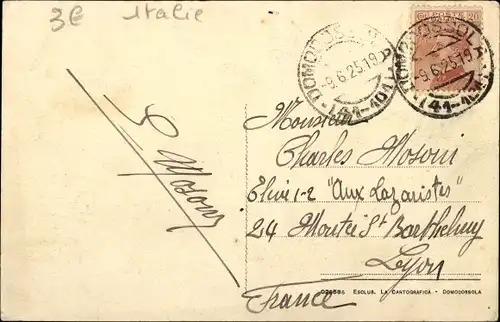 3€ Italie
DOMODOSSOLA
-9.6.25.19
(41-104)
DOMODOSSOLA
-9.6.25.19
(41-104)
Monsieur
Charles Mosoni
Elève 1-2 "Aux Lazaristes"
24 Montée St Barthelmy
Lyon
France
Mosoni
ESCLUS. LA CARTOGRAFICA - DOMODOSSOLA